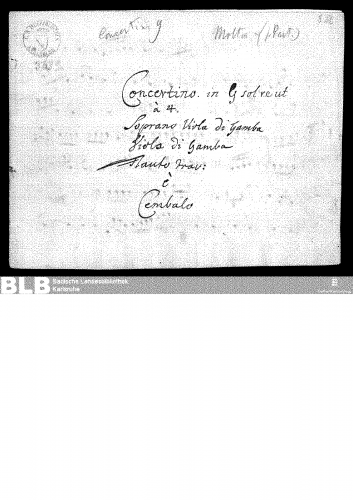 Concertino g
Molter (Part.)
Concertino. in G sol re ut
à 4.
Soprano Viola di Gamba
Viola di Gamba
Flauto trav:
è
Cembalo
BLB Badische Landesbibliothek
Karlsruhe